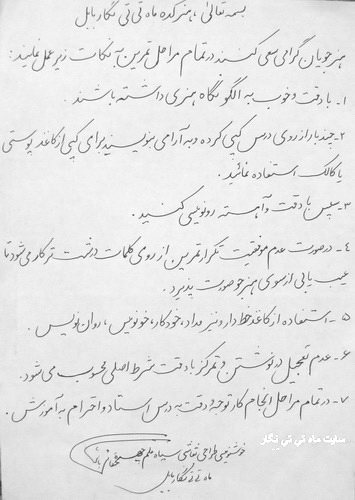 بسمه تعالی، هنرکده ماه تی تی نگار بابل
هنرجویان گرامی سعی کنند در تمام مراحل تمرین به نکات زیر عمل نمایند:
۱- با دقت و خوب به الگو نگاه هنری داشته باشند.
۲- چند بار از روی درس کپی کرده و به آرامی بنویسند برای کپی از کاغذ پوستی
یا کالک استفاده نمائید.
۳- سپس با دقت و آهسته رونویسی کنید.
۴- در صورت عدم موفقیت تکرار تمرین از روی کلمات درشت تر کار می شود تا
عیب یابی از سوی هنرجو صورت پذیرد.
۵- استفاده از کاغذ خط دار و نیز مداد، خودکار، خودنویس، روان نویس.
۶- عدم تعجیل در نوشتن و تمرکز با دقت شرط اصلی محسوب می شود.
۷- در تمام مراحل انجام کار توجه و دقت به درس استاد و احترام به آموزش.
خوشنویسی طراحی نقاشی سیاه قلم
ماه تی تی نگار بابل
سایت ماه تی تی نگار